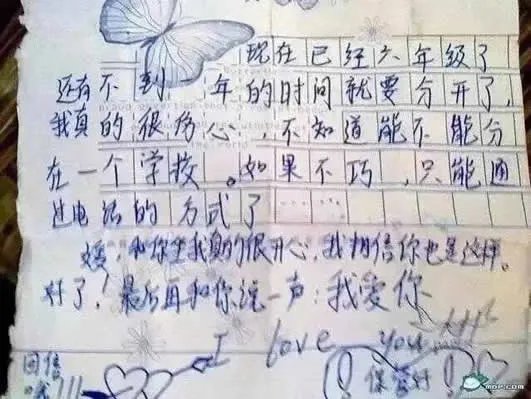 现在已经六年级了
还有不到一年的时间就要分开了,
我真的很伤心,不知道能不能分
在一个学校。如果不巧,只能通
过电话的方式了……
媛:和你坐我真的很开心,我相信你也是这样。
好了!最后再和你说一声:我爱你
I love you
回信
哦!!!
保管好
MOP.com